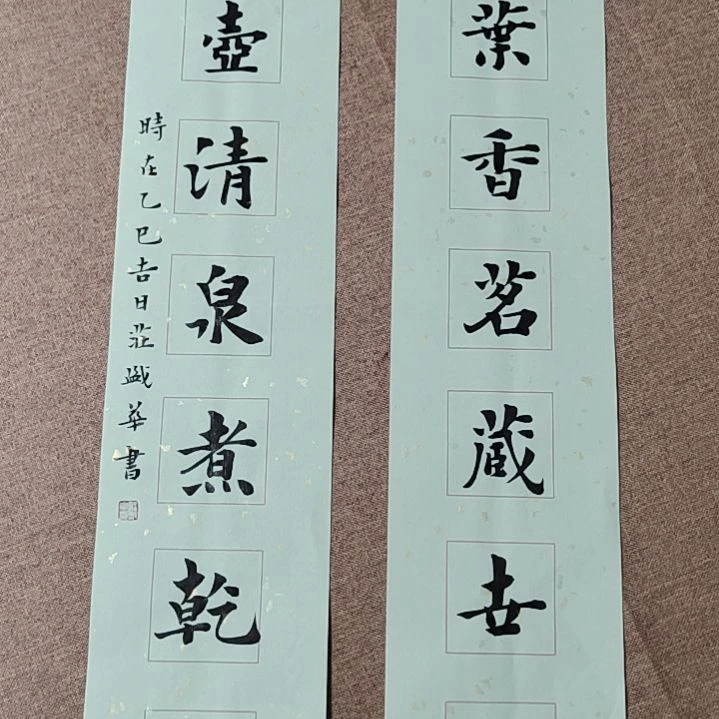 葉香茗蔵世
壺清泉煮乾
時在乙巳吉日莊盛華書